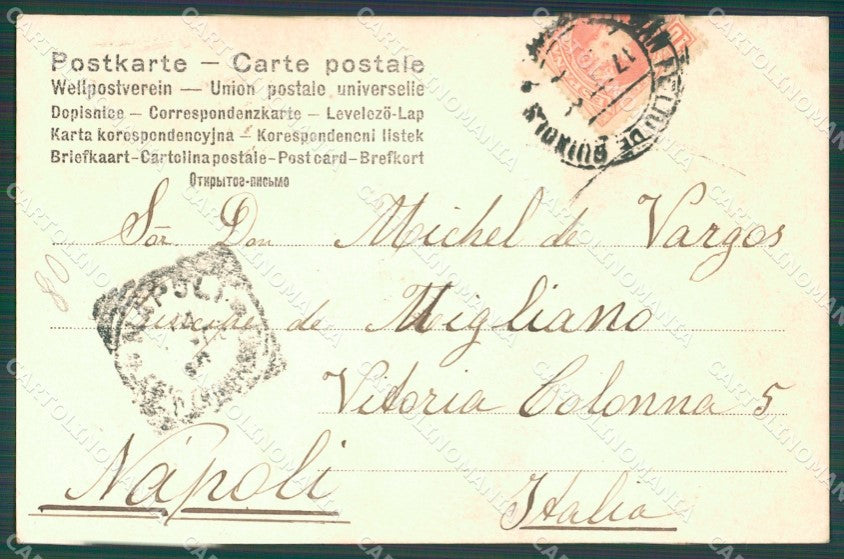 Postkarte – Carte postale
Weltpostverein — Union postale universelle
Dopisnice – Correspondenzkarte – Levelező-Lap
Karta korespondencyjna – Korespondencni listek
Briefkaart-Cartolina postale-Post card-Brefkort
Открытое-письмо
FELIU DE GUIXOLS
17
Sor Don Michel de Vargos
NAPOLI
de Migliano
Vitoria Colonna 5
Napoli
Italia
CARTOLINOMANIA